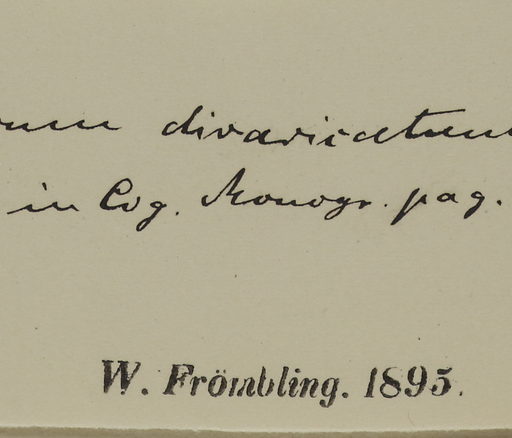 divaricatum
in Cog. Monogr. pag.
W. Frömbling. 1895.